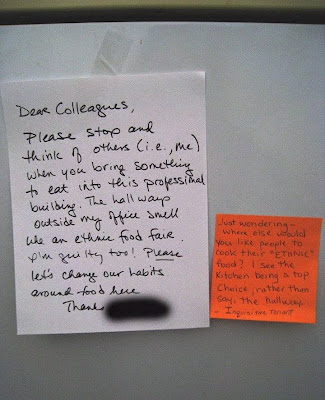 Dear Colleagues,
Please stop and
think of others (i.e., me)
when you bring something
to eat into this professional
building. The hallways
outside my office smell
like an ethnic food fair.
I'm guilty too! Please
let's change our habits
around food here
Thanks
Just wondering -
where else would
you like people to
cook their "ETHNIC"
food? I see the
kitchen being a top
choice, rather than
say, the hallway.
- Inquisitive Tenant